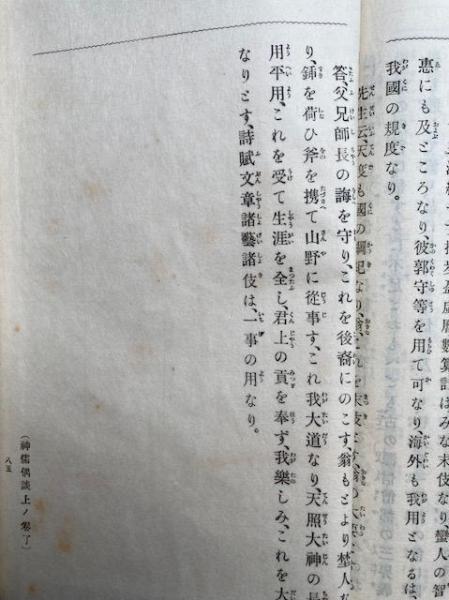 盈虚暦數算計はみな末伎なり、蠻人の智
惠にも及ところなり、彼郭守等を用て可なり、海外も我用となるは、
我國の規度なり。
先生云、天度も國の綱紀なり、翁これを末伎とす、翁の大
答、父兄師長の誨を守り、これを後裔にのこす、翁もとより埜人な
り、鍤を荷ひ斧を携て山野に從事す、これ我大道なり、天照大神の長
用平用、これを受て生涯を全し、君上の貢を奉ず、我樂しみ、これを大
なりとす、詩賦文章諸藝諸伎は、一事の用なり。
(神儒偶談上ノ卷了)
八五